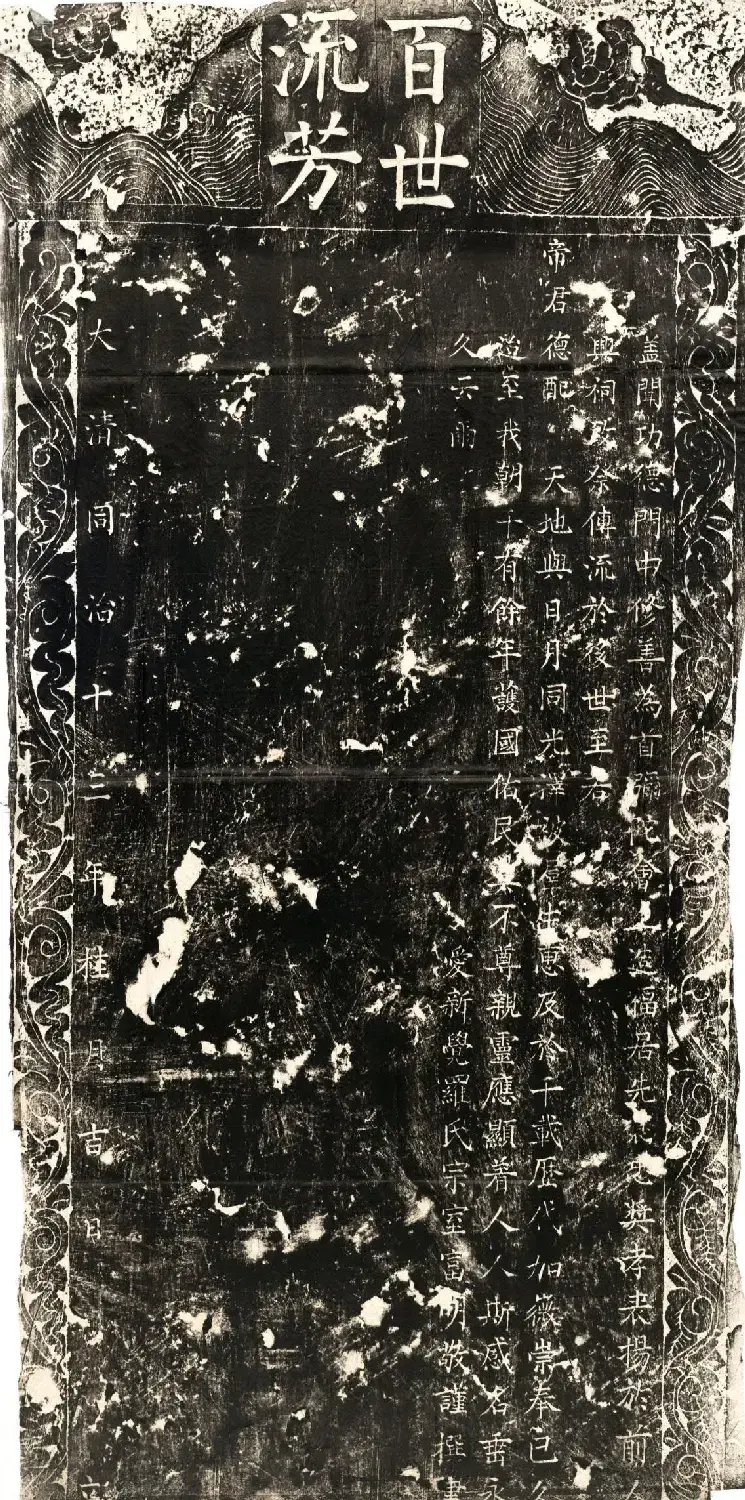 百世
流芳
蓋聞功德門中修善為首彌陀會 造福居先 孝表揚於前人
興祠 祭傳流於後世至若
帝君德配 天地與日月同光澤 惠及於千載歷代加徽崇奉已久
迨至我朝 有餘年護國佑民 不尊親靈應顯着人人斯感名垂永
久云爾 愛新覺羅氏宗室富明敬謹撰書
大清同治十二年桂月吉日